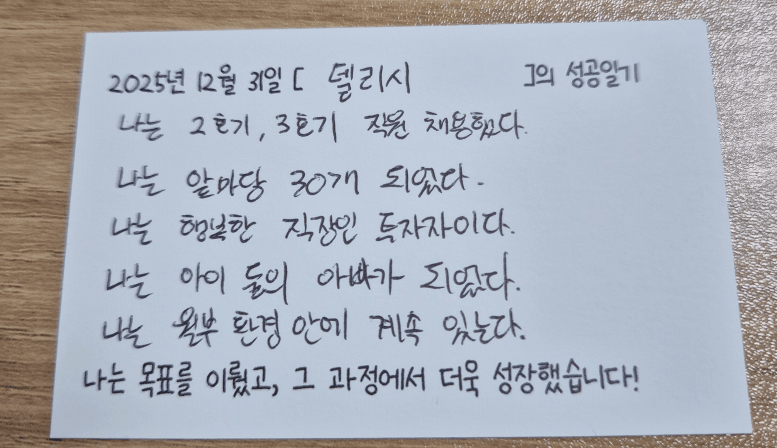 2025년 12월 31일 [ 델리시 ]의 성공일기
나는 2호기, 3호기 직원 채용했다.
나는 앞마당 30개 되었다.
나는 행복한 직장인 투자자이다.
나는 아이 둘의 아빠가 되었다.
나는 월부 환경 안에 계속 있는다.
나는 목표를 이뤘고, 그 과정에서 더욱 성장했습니다!